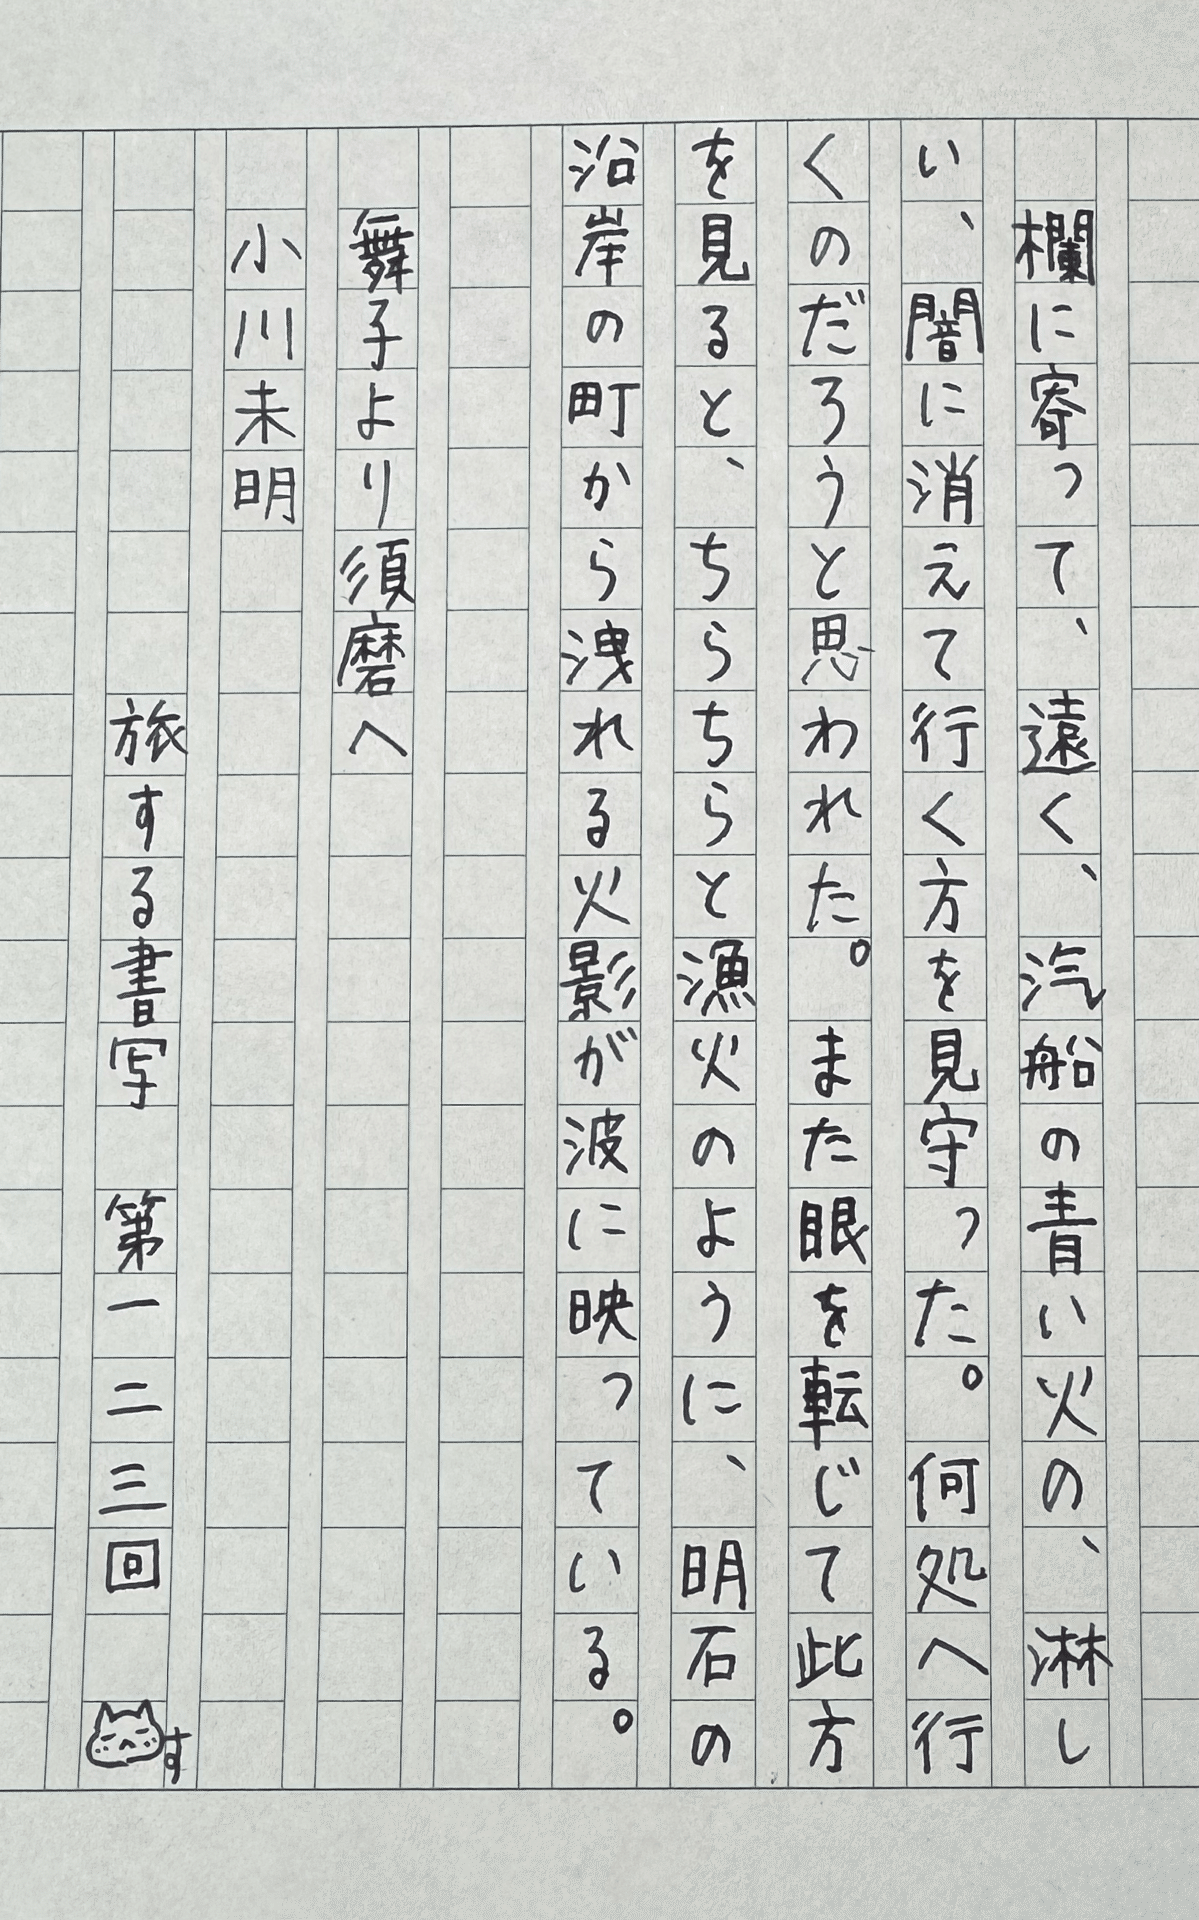 欄に寄って、遠く、汽船の青い火の、淋し
い、闇に消えて行く方を見守った。何処へ行
くのだろうと思われた。また眼を転じて此方
を見ると、ちらちらと漁火のように、明石の
沿岸の町から洩れる火影が波に映っている。
舞子より須磨へ
小川未明
旅する書写 第一二三回 す